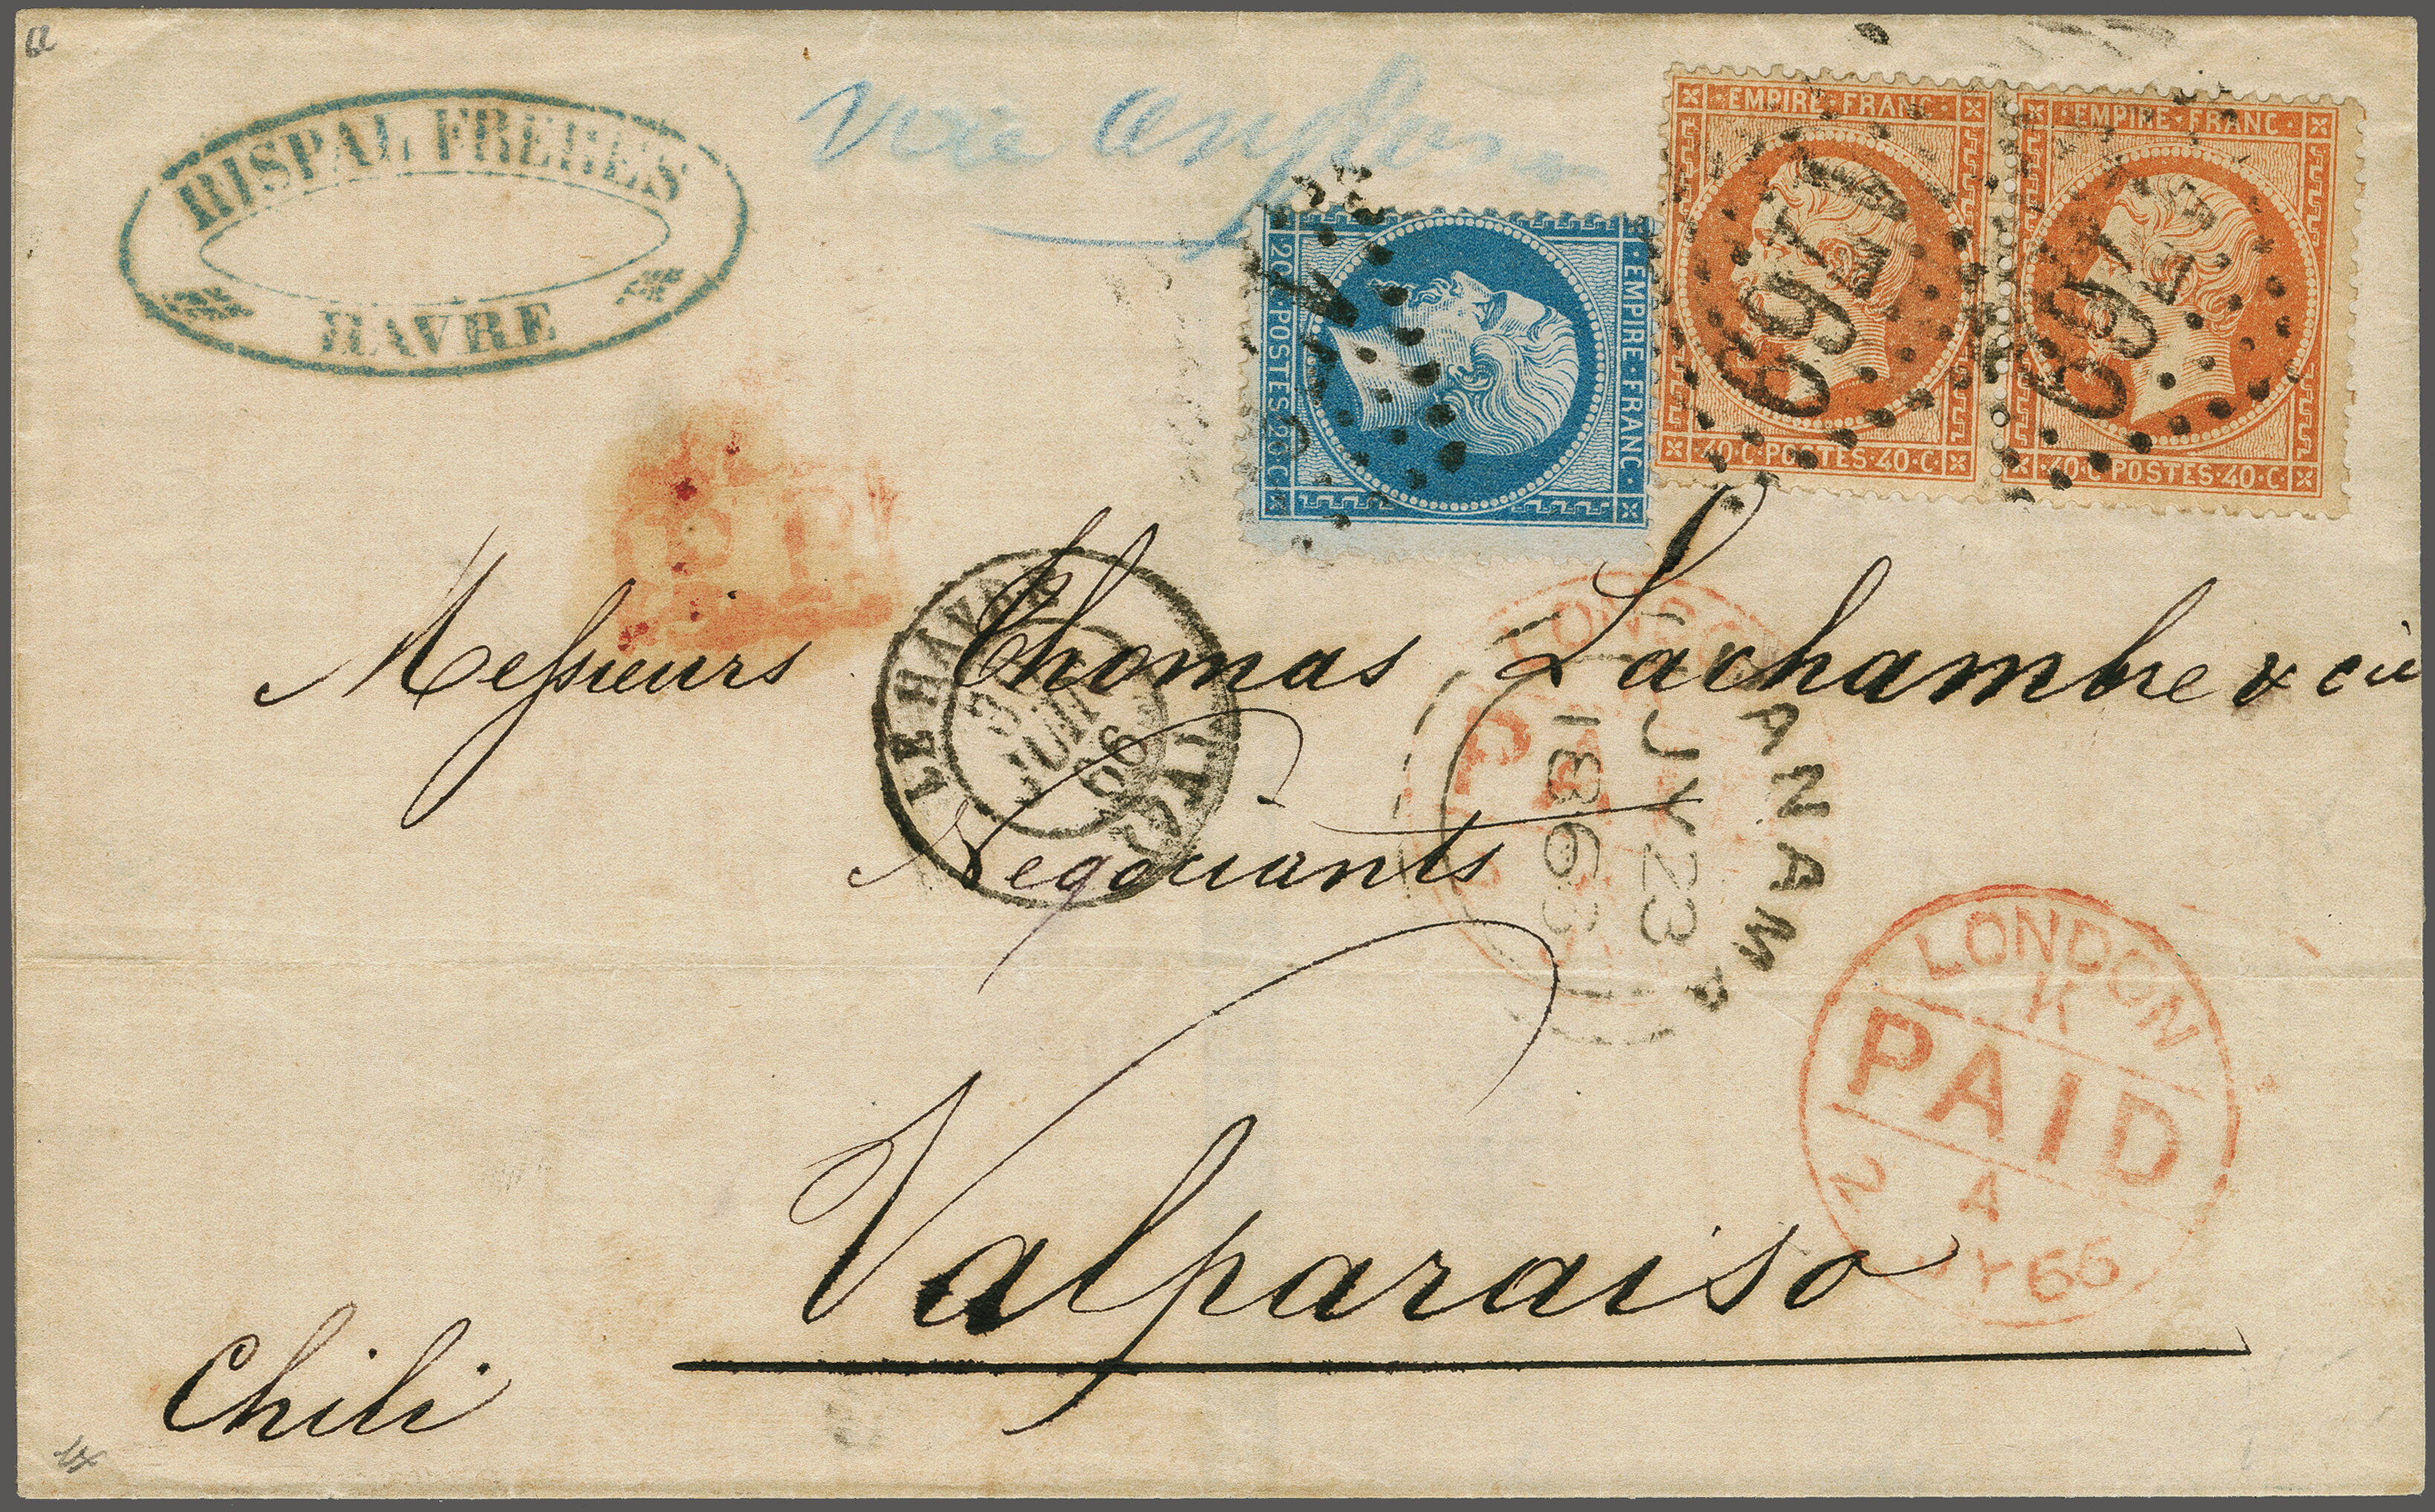 RISPAL FRERES
HAVRE
voie anglaise
EMPIRE·FRANC·
40·C·POSTES·40·C
1769
EMPIRE·FRANC·
40·C·POSTES·40·C
1769
EMPIRE·FRANC·
20·C·POSTES·20·C
P.P.
Messieurs Thomas Lachambre & cie
LE HAVRE
3
JUIL
66
LONDON
PAID
PANAMA
JY 23
1866
Négociants
LONDON
K
PAID
2 A
JY 66
Valparaiso
Chili